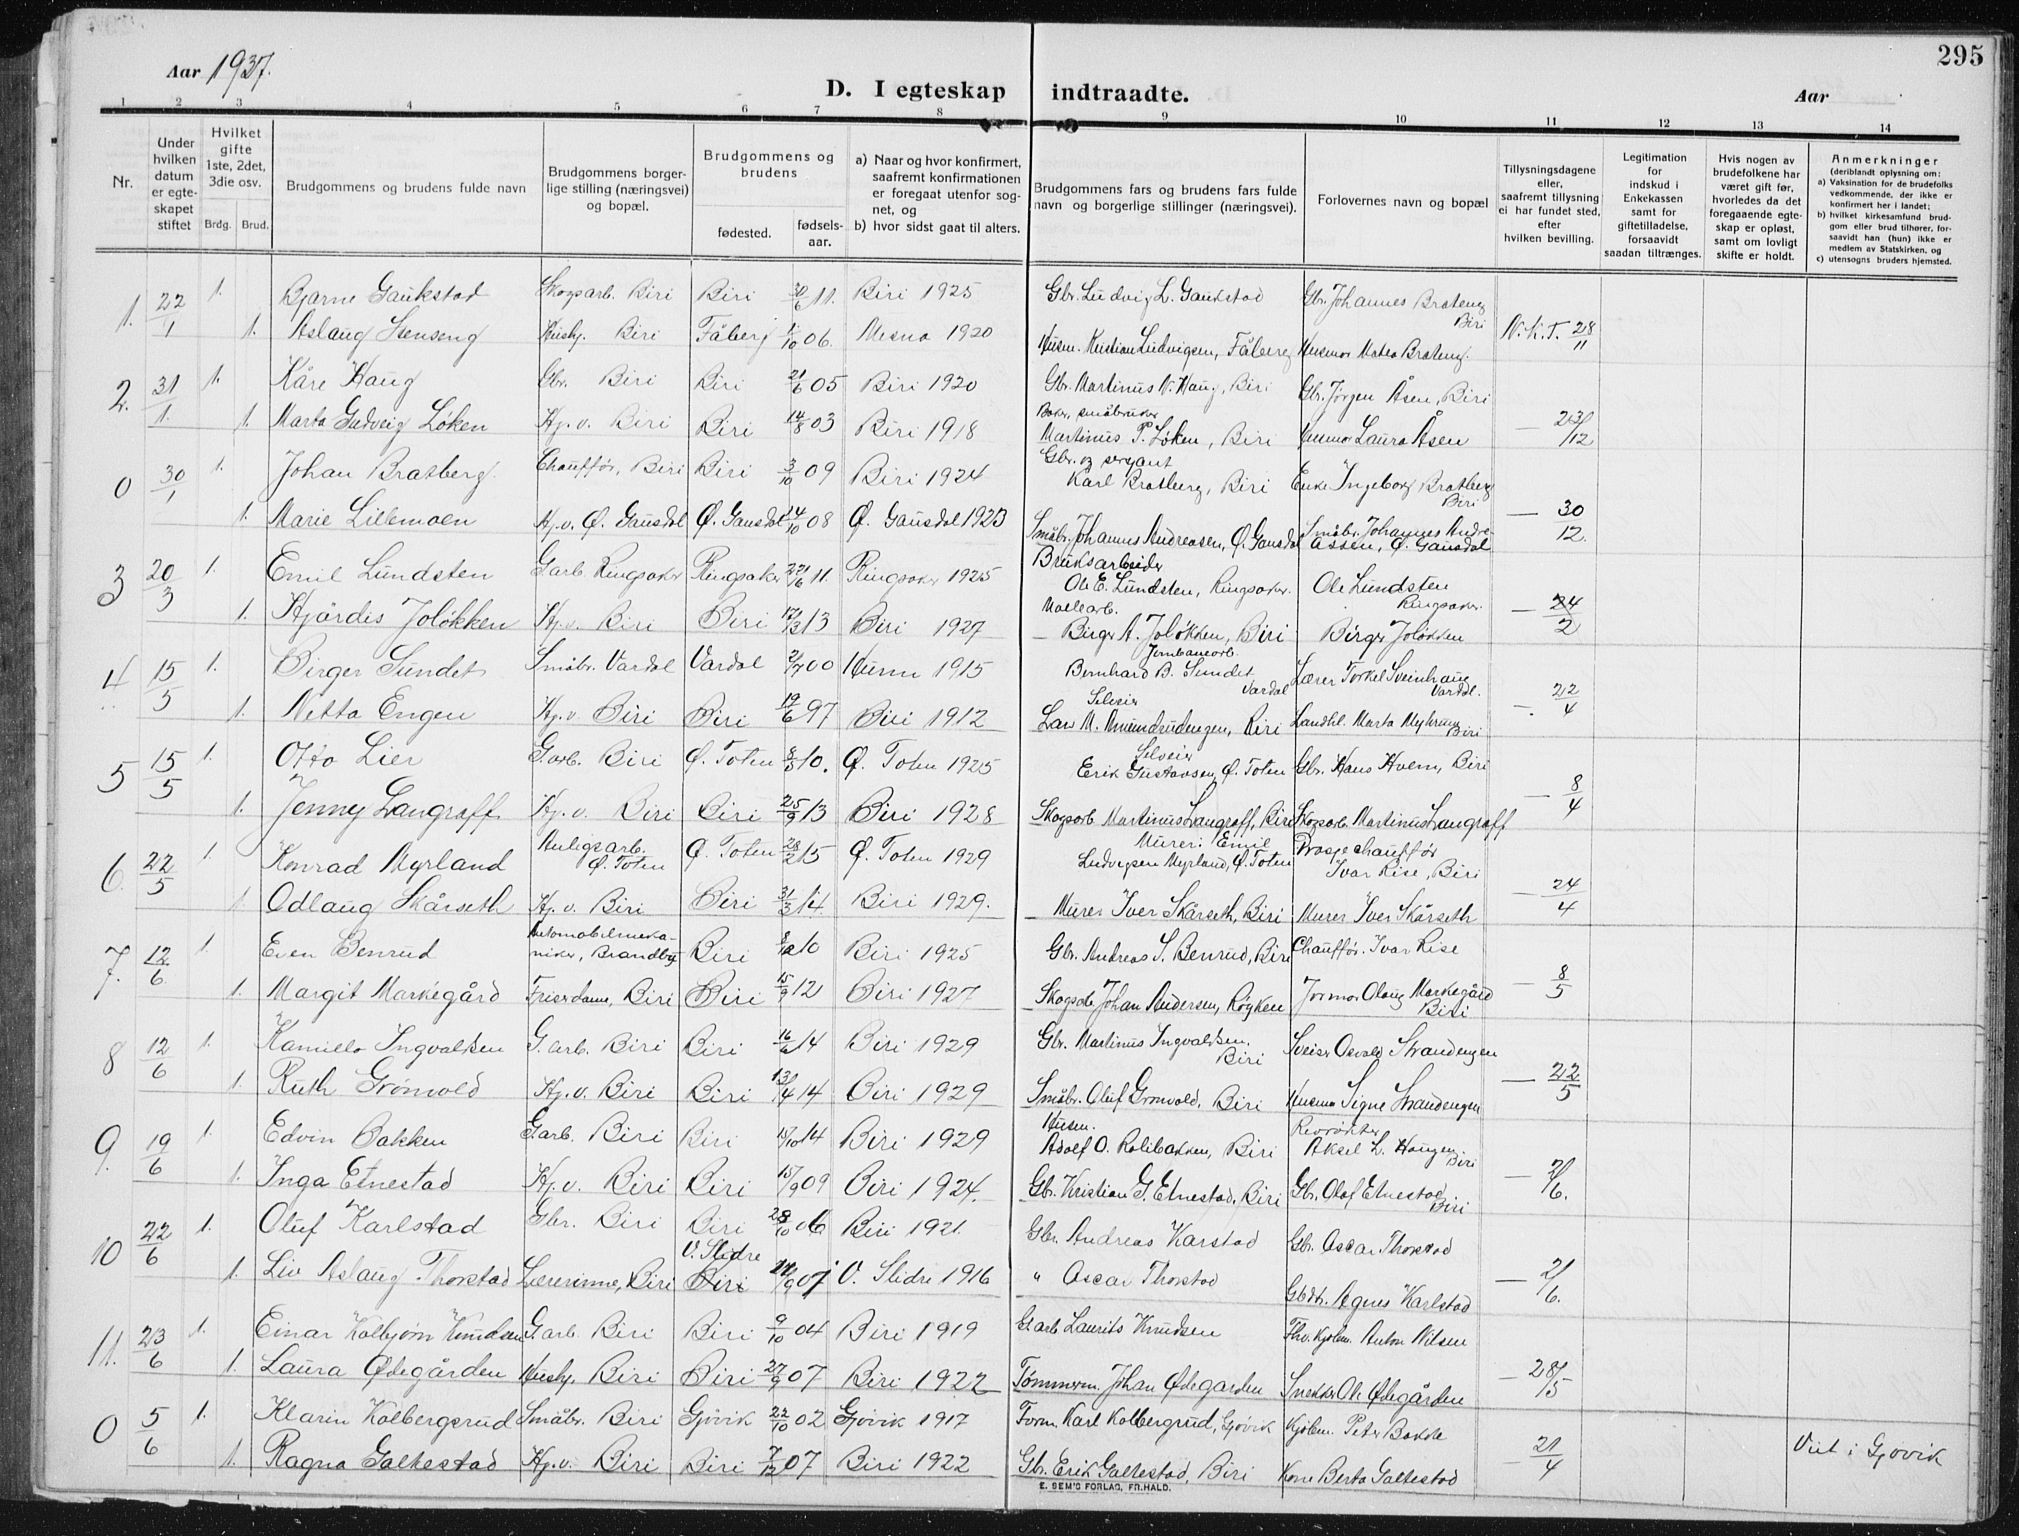 295
Aar 1937.
D. I egteskap indtraadte.
Aar
1 2 3 4 5 6 7 8 9 10 11 12 13 14
Nr.
Under hvilken datum er egte-skapet stiftet
Hvilket gifte 1ste, 2det, 3die osv.
Brdg. Brud.
Brudgommens og brudens fulde navn
Brudgommens borger-lige stilling (næringsvei) og bopæl.
Brudgommens og brudens
fødested.
fødsels-aar.
a) Naar og hvor konfirmert, saafremt konfirmationen er foregaat utenfor sog-net, og
b) hvor sidst gaat til alters.
Brudgommens fars og brudens fars fulde navn og borgerlige stillinger (næringsvei).
Forlovernes navn og bopæl
Tillysningsdagene eller, saafremt tillysning ei har fundet sted, efter hvilken bevilling.
Legitimation for indskud i Enkekassen samt for giftetilladelse, forsaavidt saadan tiltrænges.
Hvis nogen av brudefolkene har været gift før, hvorledes da det foregaaende egte-skap er opløst, samt om lovligt skifte er holdt.
Anmerkninger
(deriblandt oplysning om:
a) Vaksination for de brudefolks vedkommende, der ikke er konfirmert her i landet;
b) hvilket kirkesamfund brud-gom eller brud tilhører, for-saavidt han (hun) ikke er medlem av Statskirken, og
c) utensogns bruders hjemsted.
1. 22/1 1. Bjarne Gaukstad Skogsarb. Biri Biri 30/6 11. Biri 1925 Gbr. Ludvig L. Gaukstad Gbr. Johannes Brateng Biri
1. Aslaug Stenseng Hushj. Biri Fåberg 1/10 06. Mesna 1920 Husm. Kristian Ludvigsen, Fåberg Husmor Matea Brateng. N.K.T. 28/11
2. 31/1. 1. Kåre Haug Gbr. Biri Biri 21/6 05 Biri 1920 Gbr. Martinus N. Haug, Biri Gbr. Jørgen Åsen, Biri
1. Marta Gudveig Løken Hj. v. Biri Biri 14/8 03 Biri 1918 Baker, småbruker Martinus P. Løken, Biri Husmor Laura Åsen — 23/12
0 30/1 1. Johan Bratberg Chauffør, Biri Biri 3/10 09 Biri 1924 Gbr. og sersjant Karl Bratberg, Biri Enke Ingeborg Bratberg Biri
1. Marie Lillemoen Hj. v. Ø. Gausdal Ø. Gausdal 24/10 08 Ø. Gausdal 1923 Småbr. Johannes Andreasen, Ø. Gausdal Småbr. Johannes Andreassen, Ø. Gausdal — 30/12.
3 20/3 1. Emil Lundsten G. arb. Ringsaker Ringsaker 22/6 11. Ringsaker 1925 Bruksarbeider Ole E. Lundsten, Ringsaker. Ole Lundsten Ringsaker.
1. Hjårdis Joløkken Hj. v. Biri Biri 17/3 13 Biri 1927 — Birger A. Joløkken, Biri Birger Joløkken — 24/2
4 15/5 1. Birger Sundet Småbr. Vardal Vardal 2/7 00 Hunn 1915 Jernbanearb. Bernhard B. Sundet Vardal Lærer Torkel Sveinhaug Vardal.
1. Netta Engen Hj. v. Biri Biri 19/6 97 Biri 1912 Selveier Lars M. Amundrudengen, Biri Landhl. Marta Myhrang Biri —. 22/4
5 15/5 1. Otto Lier G. arb. Biri Ø. Toten 8/3 10. Ø. Toten 1925 Selveier Erik Gustavsen, Ø. Toten Gbr. Hans Hvem, Biri
1. Jenny Langraff Hj. v. Biri Biri 25/9 13 Biri 1928 Skogsarb. Martinus Langraff, Biri Skogsarb. Martinus Langraff — 8/4
6. 22/5 1. Konrad Myrland Anlegsarb. Ø. Toten Ø. Toten 28/2 15 Ø. Toten 1929 Murer: Emil Ludvigsen Myrland, Ø. Toten Drosjechauffør Ivar Rise, Biri
1. Odlaug Skårseth Hj. v. Biri Biri 31/3 14. Biri 1929. — Murer Iver Skårseth, Biri Murer Iver Skårseth — 24/4
7. 12/6 1. Even Benrud Automobilmeka-niker, Brandbu Biri 8/12 10 Biri 1925 Gbr. Andreas S. Benrud, Biri Chauffør. Ivar Rise
1. Margit Markegård Friserdame, Biri Biri 15/9 12 Biri 1927 Skogsarb. Johan Andersen, Røyken Jormor Olaug Markegård Biri — 8/5
8 12/6 1. Kamillo Ingvaldsen G. arb. Biri Biri 16/6 14 Biri 1929 Gbr. Martinus Ingvaldsen. Biri Sveiser Osvald Strandengen
1. Ruth Grønvold Hj. v. Biri Biri 13/4 14 Biri 1929 Småbr. Oluf Grønvold, Biri Husmor Signe Strandengen — 22/5
9. 19/6 1. Edvin Bakken G. arb. Biri Biri 15/10 14 Biri 1929 Husm. Adolf O. Kolibakken, Biri Revrøkter Aksel L. Haugen Biri
1. Inga Etnestad Hj. v. Biri Biri 15/9 09 Biri 1924. Gbr. Kristian G. Etnestad, Biri Gbr. Olaf Etnestad Biri — 2/6.
10 22/6 1. Oluf Karlstad Gbr. Biri Biri 28/10 06 Biri 1921. Gbr. Andreas Karstad Gbr. Oscar Thorstad
1. Liv Aslaug Thorstad Lærerinne, Biri V. Slidre Biri 9 01 V. Slidre 1916 " Oscar Thorstad Gbdtr. Agnes Karlstad — 2/6.
11. 23/6 1. Einar Kolbjørn Knudsen G. arb. Biri Biri 9/10 04 Biri 1919 G. arb. Laurits Knudsen Fhv. kjøbm. Anton Nilsen
1. Laura Ødegården Hushj. Biri Biri 27/9 07 Biri 1922 Tømmerm. Johan Ødegarden Snekker Ole Ødegården — 28/5
0 5/6 1. Klarin Kolbergsrud Småbr. Biri Gjøvik 22/10 02 Gjøvik 1917 Form. Karl Kolbergrud, Gjøvik Kjøbm. Peter Bakke
1. Ragna Galtestad Hj. v. Biri Biri 7/12 07 Biri 1922 Gbr. Erik Galtestad, Biri Kone Berta Galtestad — 21/4 Viet i Gjøvik
E. SEM'S FORLAG, FR.HALD.